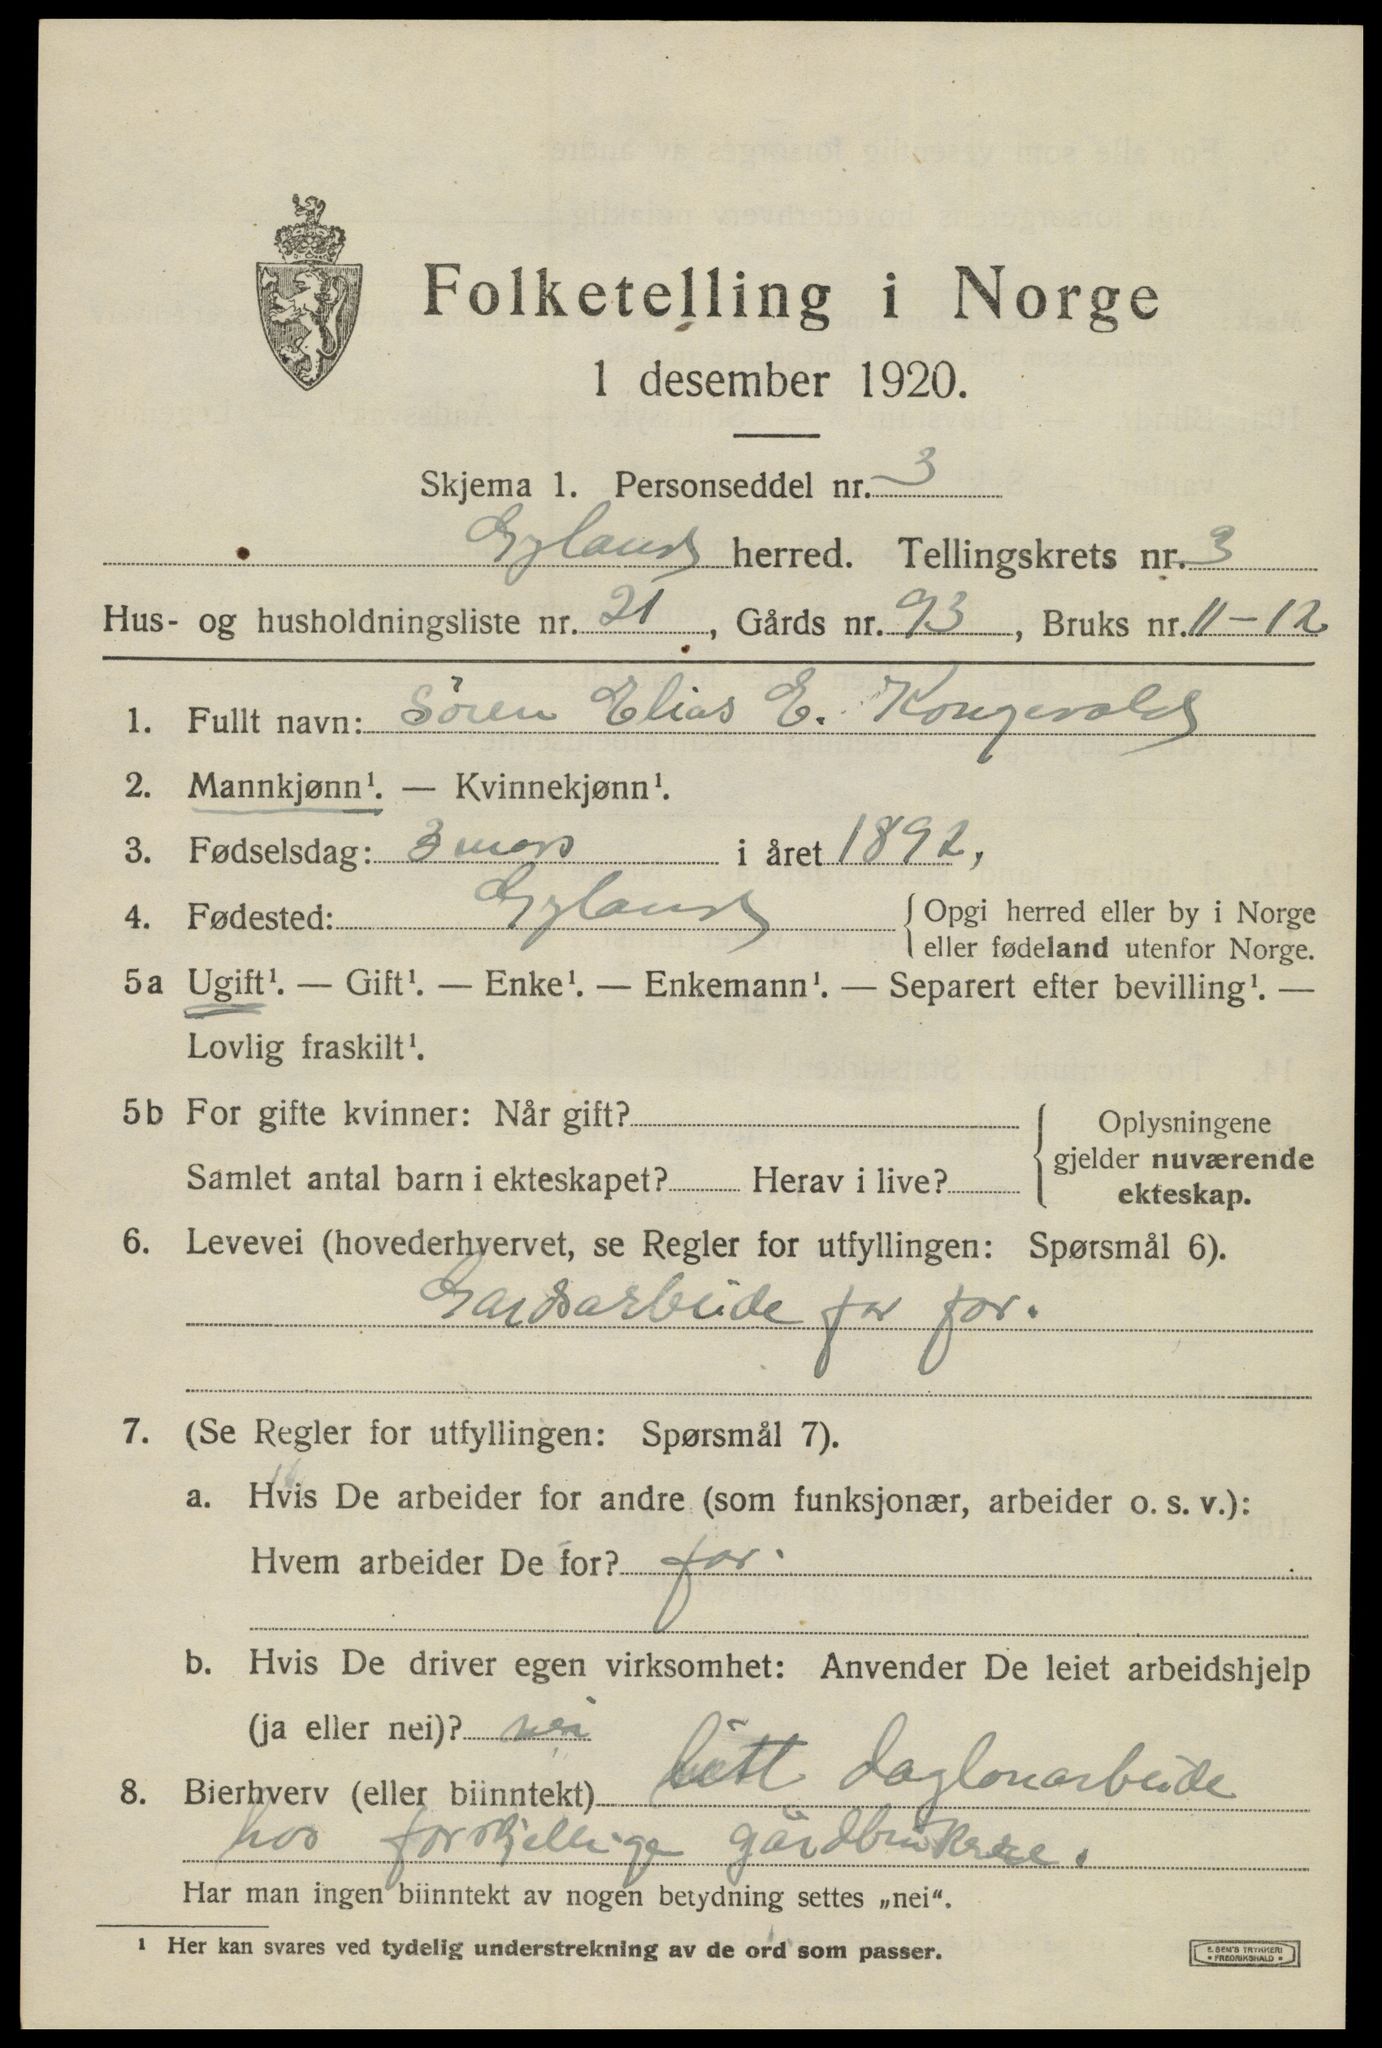 Folketelling i Norge
1 desember 1920.
Skjema 1. Personseddel nr. 3
Gyland herred. Tellingskrets nr. 3
Hus- og husholdningsliste nr. 21, Gårds nr. 93, Bruks nr. 11-12
1. Fullt navn: Sören Elias E. Kongevold
2. Mannkjønn¹. — Kvinnekjønn¹.
3. Fødselsdag: 3 mars i året 1892,
4. Fødested: Gyland { Opgi herred eller by i Norge
eller fødeland utenfor Norge.
5a Ugift¹. — Gift¹. — Enke¹. — Enkemann¹. — Separert efter bevilling¹. —
Lovlig fraskilt¹.
5b For gifte kvinner: Når gift? { Oplysningene
gjelder nuværende
Samlet antal barn i ekteskapet? Herav i live? ekteskap.
6. Levevei (hovederhvervet, se Regler for utfyllingen: Spørsmål 6).
Gardsarbeide for far.
7. (Se Regler for utfyllingen: Spørsmål 7).
a. Hvis De arbeider for andre (som funksjonær, arbeider o. s. v.):
Hvem arbeider De for? far.
b. Hvis De driver egen virksomhet: Anvender De leiet arbeidshjelp
(ja eller nei)? nei
8. Bierhverv (eller biinntekt) litt daglonarbeide
hos forskjellige gårdbrukere.
Har man ingen biinntekt av nogen betydning settes „nei“.
¹ Her kan svares ved tydelig understrekning av de ord som passer.
E. SEM'S TRYKKERI
• FREDRIKSHALD •